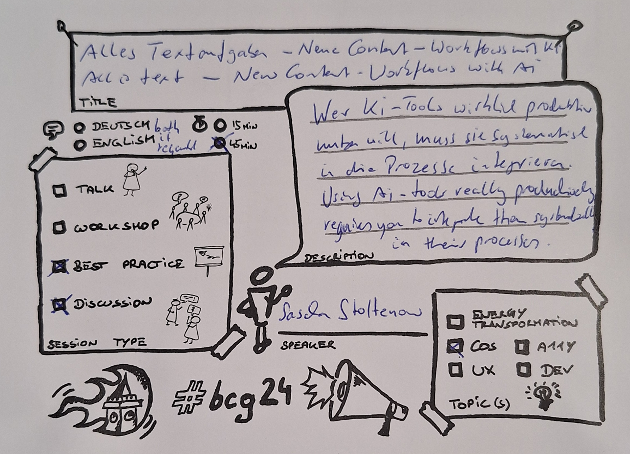 Alles Textaufgaben – Neue Content – Workflows mit KI
All is text – New Content – Workflows with Ai
TITLE
DEUTSCH both if
ENGLISH
15 MIN
45 MIN
Wer KI-Tools wirklich produktiv
nutzen will, muss sie systematisch
in die Prozesse integrieren.
Using Ai-tools really productively
requires you to integrate them systematically
in their processes.
DESCRIPTION
TALK
WORKSHOP
BEST PRACTICE
DISCUSSION
SESSION TYPE
Sascha Stoltenow
SPEAKER
ENERGY
TRANSFORMATION
COS
A11Y
UX
DEV
TOPIC(S)
#bcg24